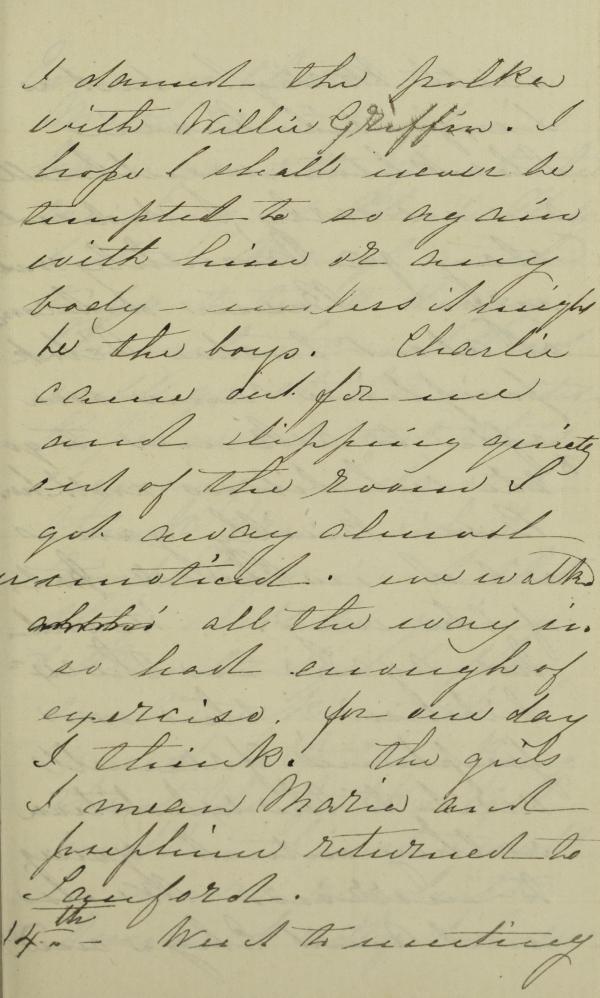 I danced the polka
with Willie Griffin. I
hope I shall never be
tempted to so again
with him or any
body - unless it might
be the boys. Charlie
came out for me
and slipping quietly
out of the room I
got away almost
unnoticed. we walked
all the way in.
so had enough of
exercise. for one day
I think. the girls
I mean Maria and
Josephine returned to
Sanford.
14th - Went to meeting